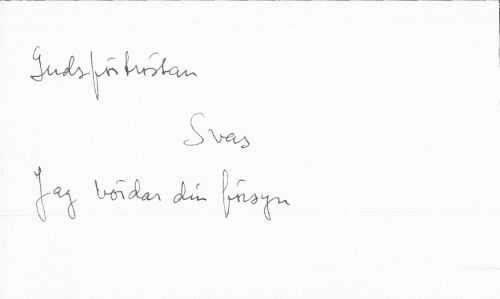 Gudsförtröstan
Svas
Jag vördar din försyn